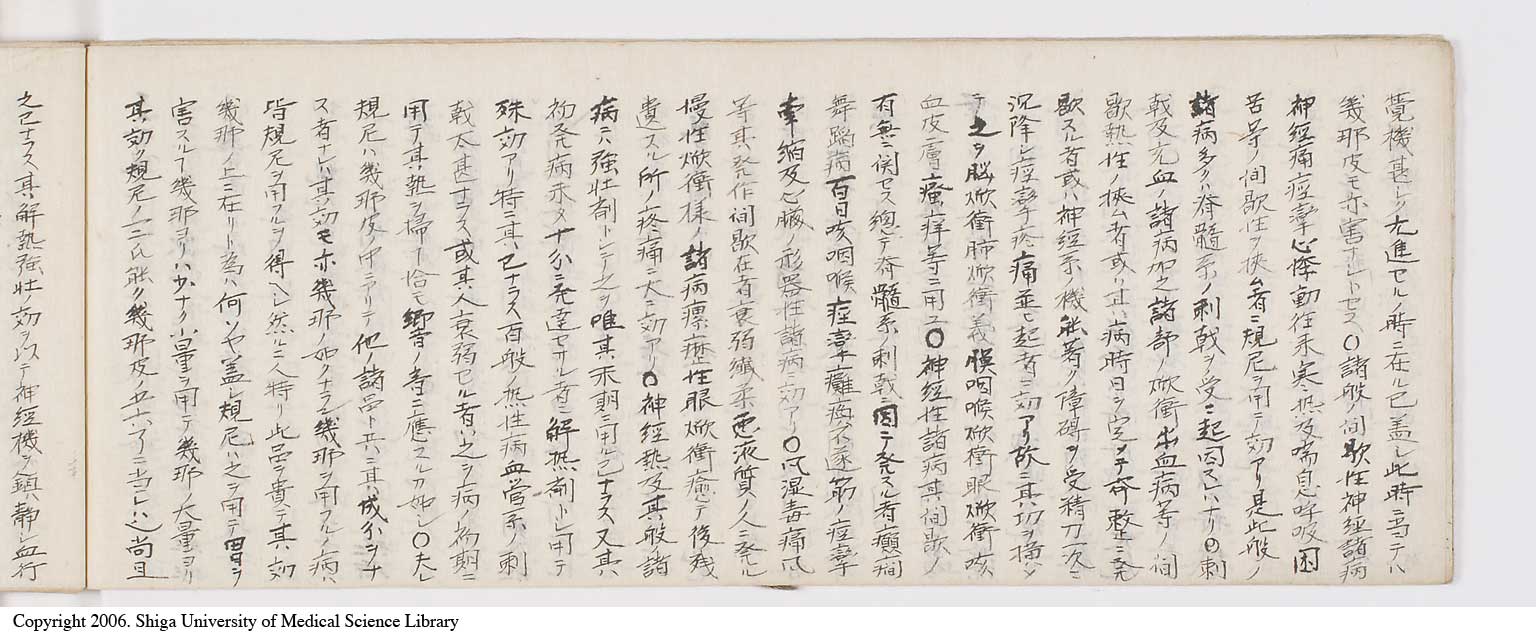 覺機甚シク亢進セルノ時ニ在ル已蓋シ此時ニ当テハ
幾那皮モ亦害ナシトセス〇諸般ノ間歇性神経諸病
神経痛痙攣心悸動往来寒热及喘息呼吸困
苦等ノ間歇性ヲ挾ム者ニ規尼ヲ用テ効アリ是此般ノ
諸病多クハ脊髓系ノ刺戟ヲ受ニ起因スレハナリ〇刺
戟及充血諸病加之諸部ノ焮衝出血病等ノ間
歇热性ノ挾ム者或ハ其病時日ヲ定メテ斉整ニ発
歇スル者或ハ神経系ノ機能著ク障碍ヲ受精力一次ニ
沉降シ痙攣疼痛並ヒ起者ニ効アリ故ニ其功ヲ称メ
テ之ヲ脳焮衝肺焮衝義膜咽喉焮衝眼焮衝咳
血皮膚瘙痒等ニ用ユ〇神経性諸病其間歇ノ
有無ニ関セス總テ脊髓系ノ刺戟ニ因テ発スル者癲癇
舞蹈病百日咳咽喉痙攣癱瘓不遂筋ノ痙攣
牽縮及心臓ノ形器性諸病ニ効アリ〇风湿毒痛风
等其発作間歇在者衰弱繊柔悪液質ノ人ニ発ル
慢性焮衝様ノ諸病瘰癧性眼焮衝癒テ後残
遺スル所ノ疼痛ニ大ニ効アリ〇神経热及其般諸
病ニハ強壮剤トシテ之ヲ唯其末期ニ用ル已ナラス又其ハ
初発病未タ十分ニ発達セサル者ニ解热剤トシ用テ
殊効アリ特ニ其已ナラス百般ノ热性病血管系ノ刺
戟太甚ナラス或其人衰弱セル者ハ之ヲ病ノ初期ニ
用テ其热ヲ掃フ恰モ郷音ノ音ニ應スルカ如シ〇夫レ
規尼ハ幾那皮ノ中ニアリテ他ノ諸品ト共ニ其ハ成分ヲナ
ス者ナレハ其効モ亦幾那ノ如クナラン幾那ヲ用フルノ病ハ
皆規尼ヲ用ルヲ得ヘシ然ルニ人特リ此品ヲ貴テ其効
幾那ノ上ニ在リト為ハ何ソヤ蓋シ規尼ハ之ヲ用テ胃ヲ
害スルフ幾那ヨリハ少ナク小量ヲ用テ幾那ノ大量ヨリ
其効ヲ規尼ノ一二氏能ク幾那皮ノ五六ハイニ当レハ也尚且
之已ナラス其解熱強壮ノ効ヲ以テ神経機ヲ鎮静シ血行
Copyright 2006. Shiga University of Medical Science Library